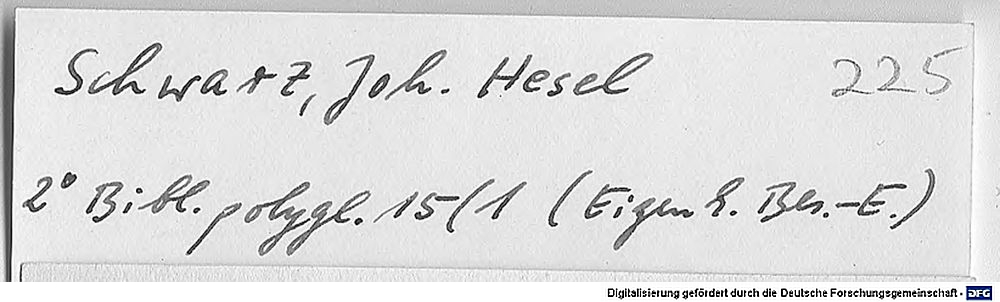 Schwarz, Joh. Hesel 225
2° Bibl. polygl. 15(1 (Eigenh. Bes.-E.)
Digitalisierung gefördert durch die Deutsche Forschungsgemeinschaft - DFG